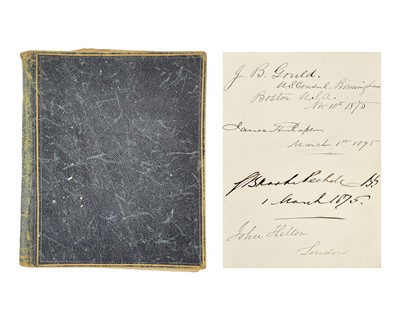 J. B. Gould.
U.S. Consul, Birmingham
Boston U.S.A.
Nov 10th 1875
James
March 1st 1875
1 March 1875.
John Hilton
London